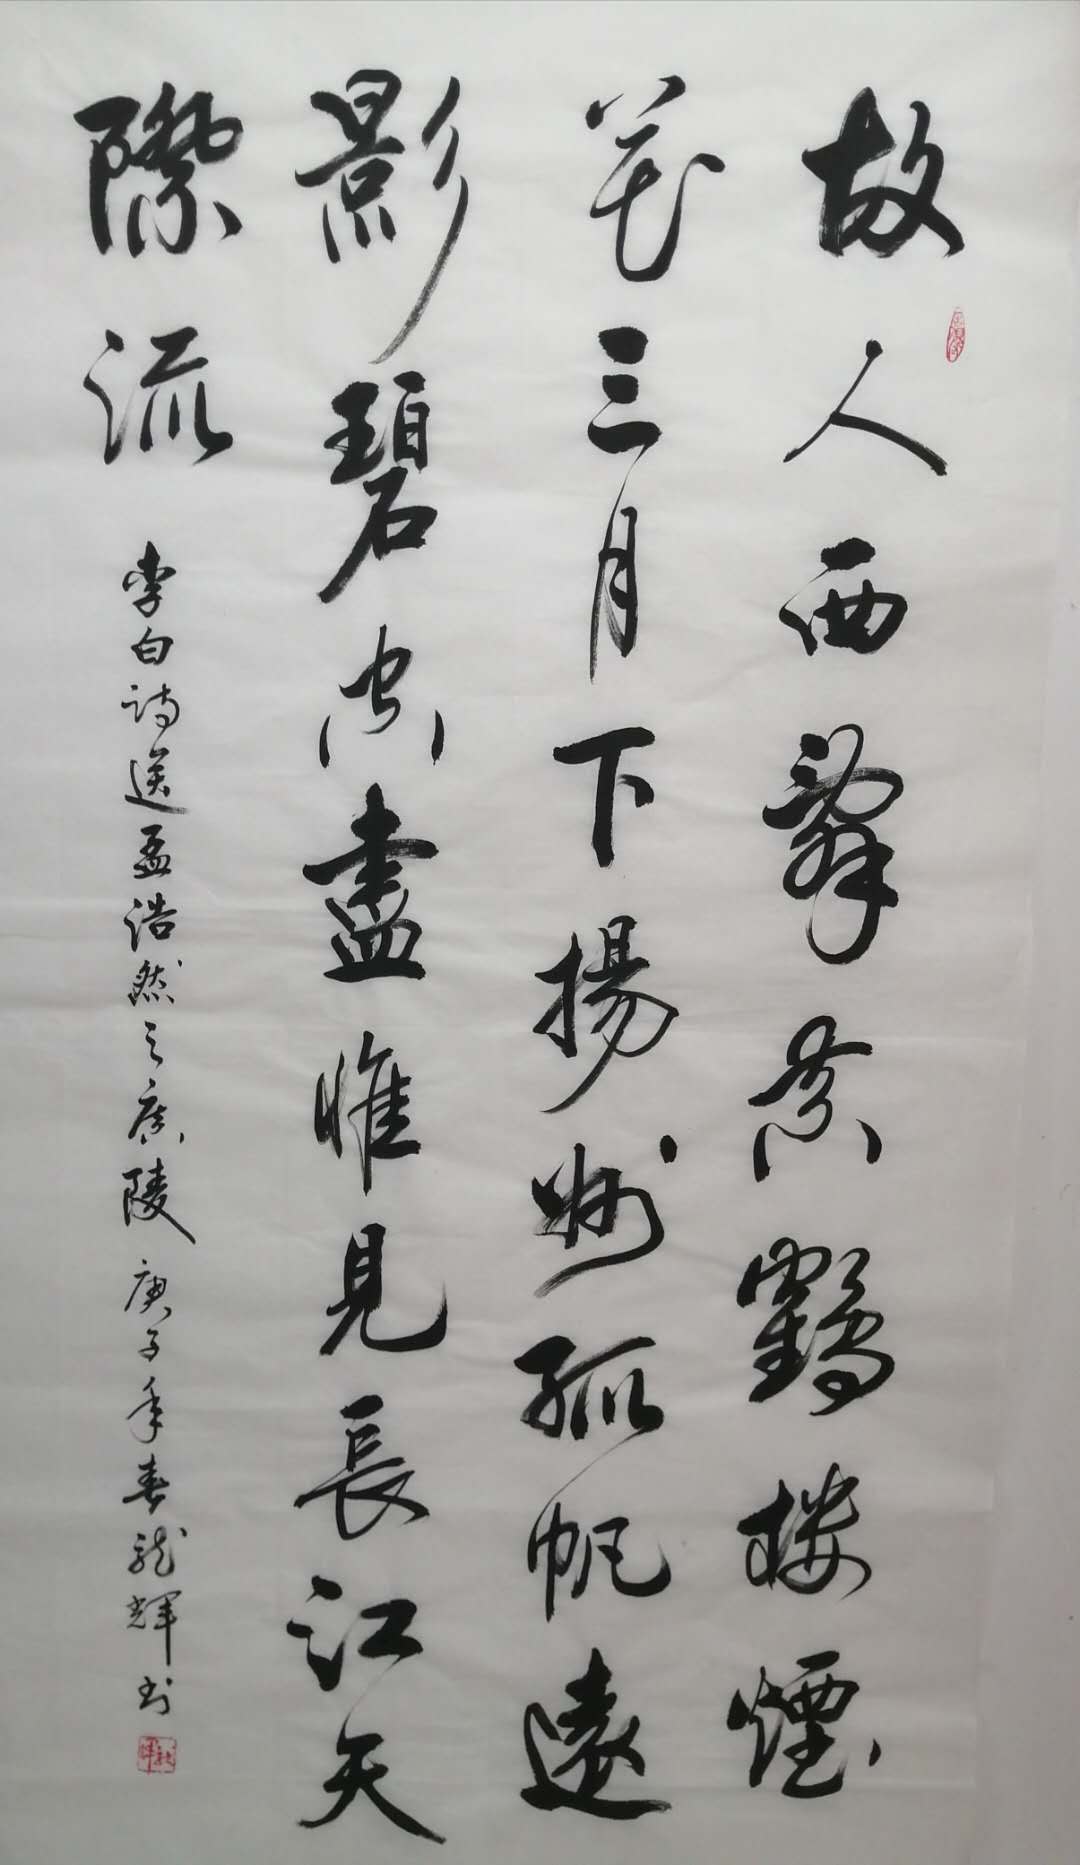 故人西辭黄鶴樓煙
花三月下揚州孤帆遠
影碧空盡惟見長江天
際流
李白詩送孟浩然之廣陵 庚子年春龍輝书